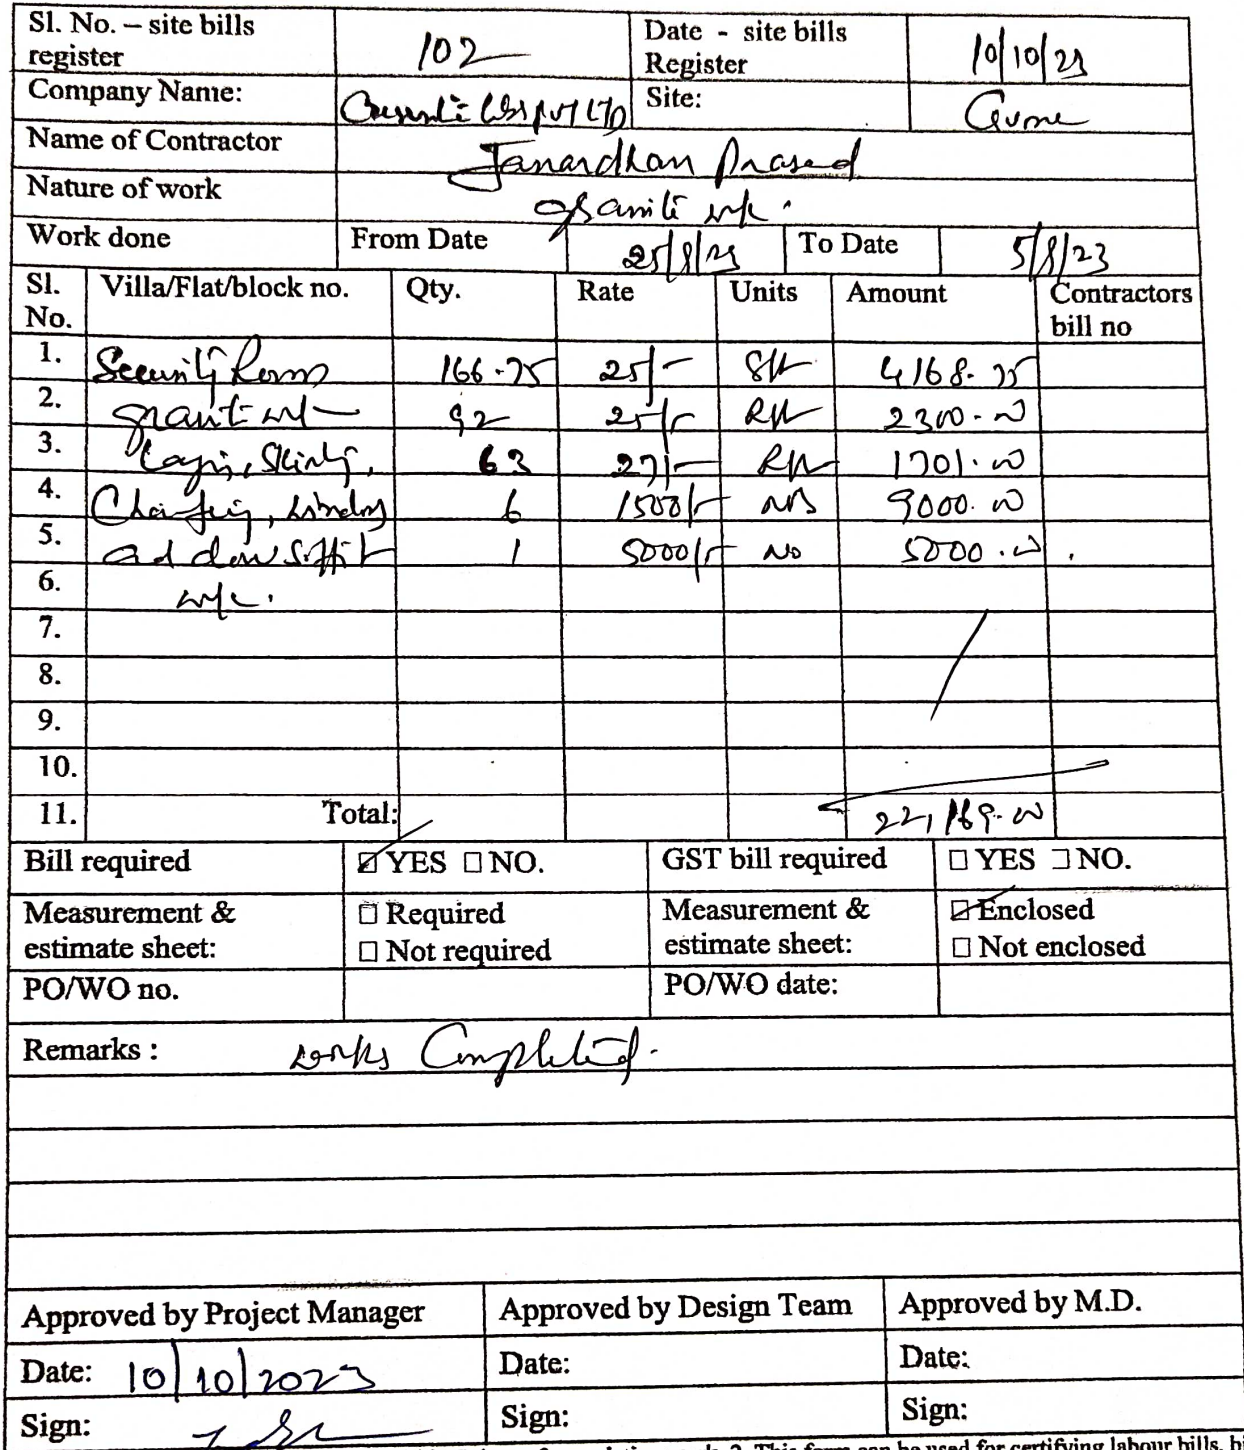 Sl. No. – site bills register 102 Date - site bills Register 10/10/23
Company Name: PVT LTD Site:
Name of Contractor Janardhan Prasad
Nature of work granite wk.
Work done From Date 25/8/23 To Date 5/8/23
Sl. No. Villa/Flat/block no. Qty. Rate Units Amount Contractors bill no
1. Security Room 166.75 25/- Sft 4168.75
2. granite wk 92 25/- Rft 2300.00
3. Laying, Skirting, 63 27/- Rft 1701.00
4. 6 1500/- nos 9000.00
5. and door soffit 1 5000/- No 5000.00
6. wk.
7.
8.
9.
10.
11. Total: 22,169.00
Bill required ☑ YES ☐ NO. GST bill required ☐ YES ☐ NO.
Measurement & estimate sheet: ☐ Required ☐ Not required Measurement & estimate sheet: ☑ Enclosed ☐ Not enclosed
PO/WO no. PO/WO date:
Remarks : works Completed.
Approved by Project Manager Approved by Design Team Approved by M.D.
Date: 10/10/2023 Date: Date:
Sign: Sign: Sign:
2. This form can be used for certifying labour bills,